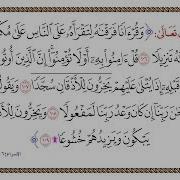 تعالى: ﴿وَقُرْءَانًا فَرَقْنَٰهُ لِتَقْرَأَهُۥ عَلَى ٱلنَّاسِ عَلَىٰ مُكـ
ـهُ تَنزِيلًا ١٠٦ قُلْ ءَامِنُوا۟ بِهِۦٓ أَوْ لَا تُؤْمِنُوٓا۟ إِنَّ ٱلَّذِينَ أُوتُوا۟
قَبْلِهِۦٓ إِذَا يُتْلَىٰ عَلَيْهِمْ يَخِرُّونَ لِلْأَذْقَانِ سُجَّدًا ١٠٧ وَيَقُولُو
ـحَٰنَ رَبِّنَآ إِن كَانَ وَعْدُ رَبِّنَا لَمَفْعُولًا ١٠٨ وَيَخِرُّونَ لِلْأَذ
يَبْكُونَ وَيَزِيدُهُمْ خُشُوعًا ١٠٩﴾ [الإسراء: